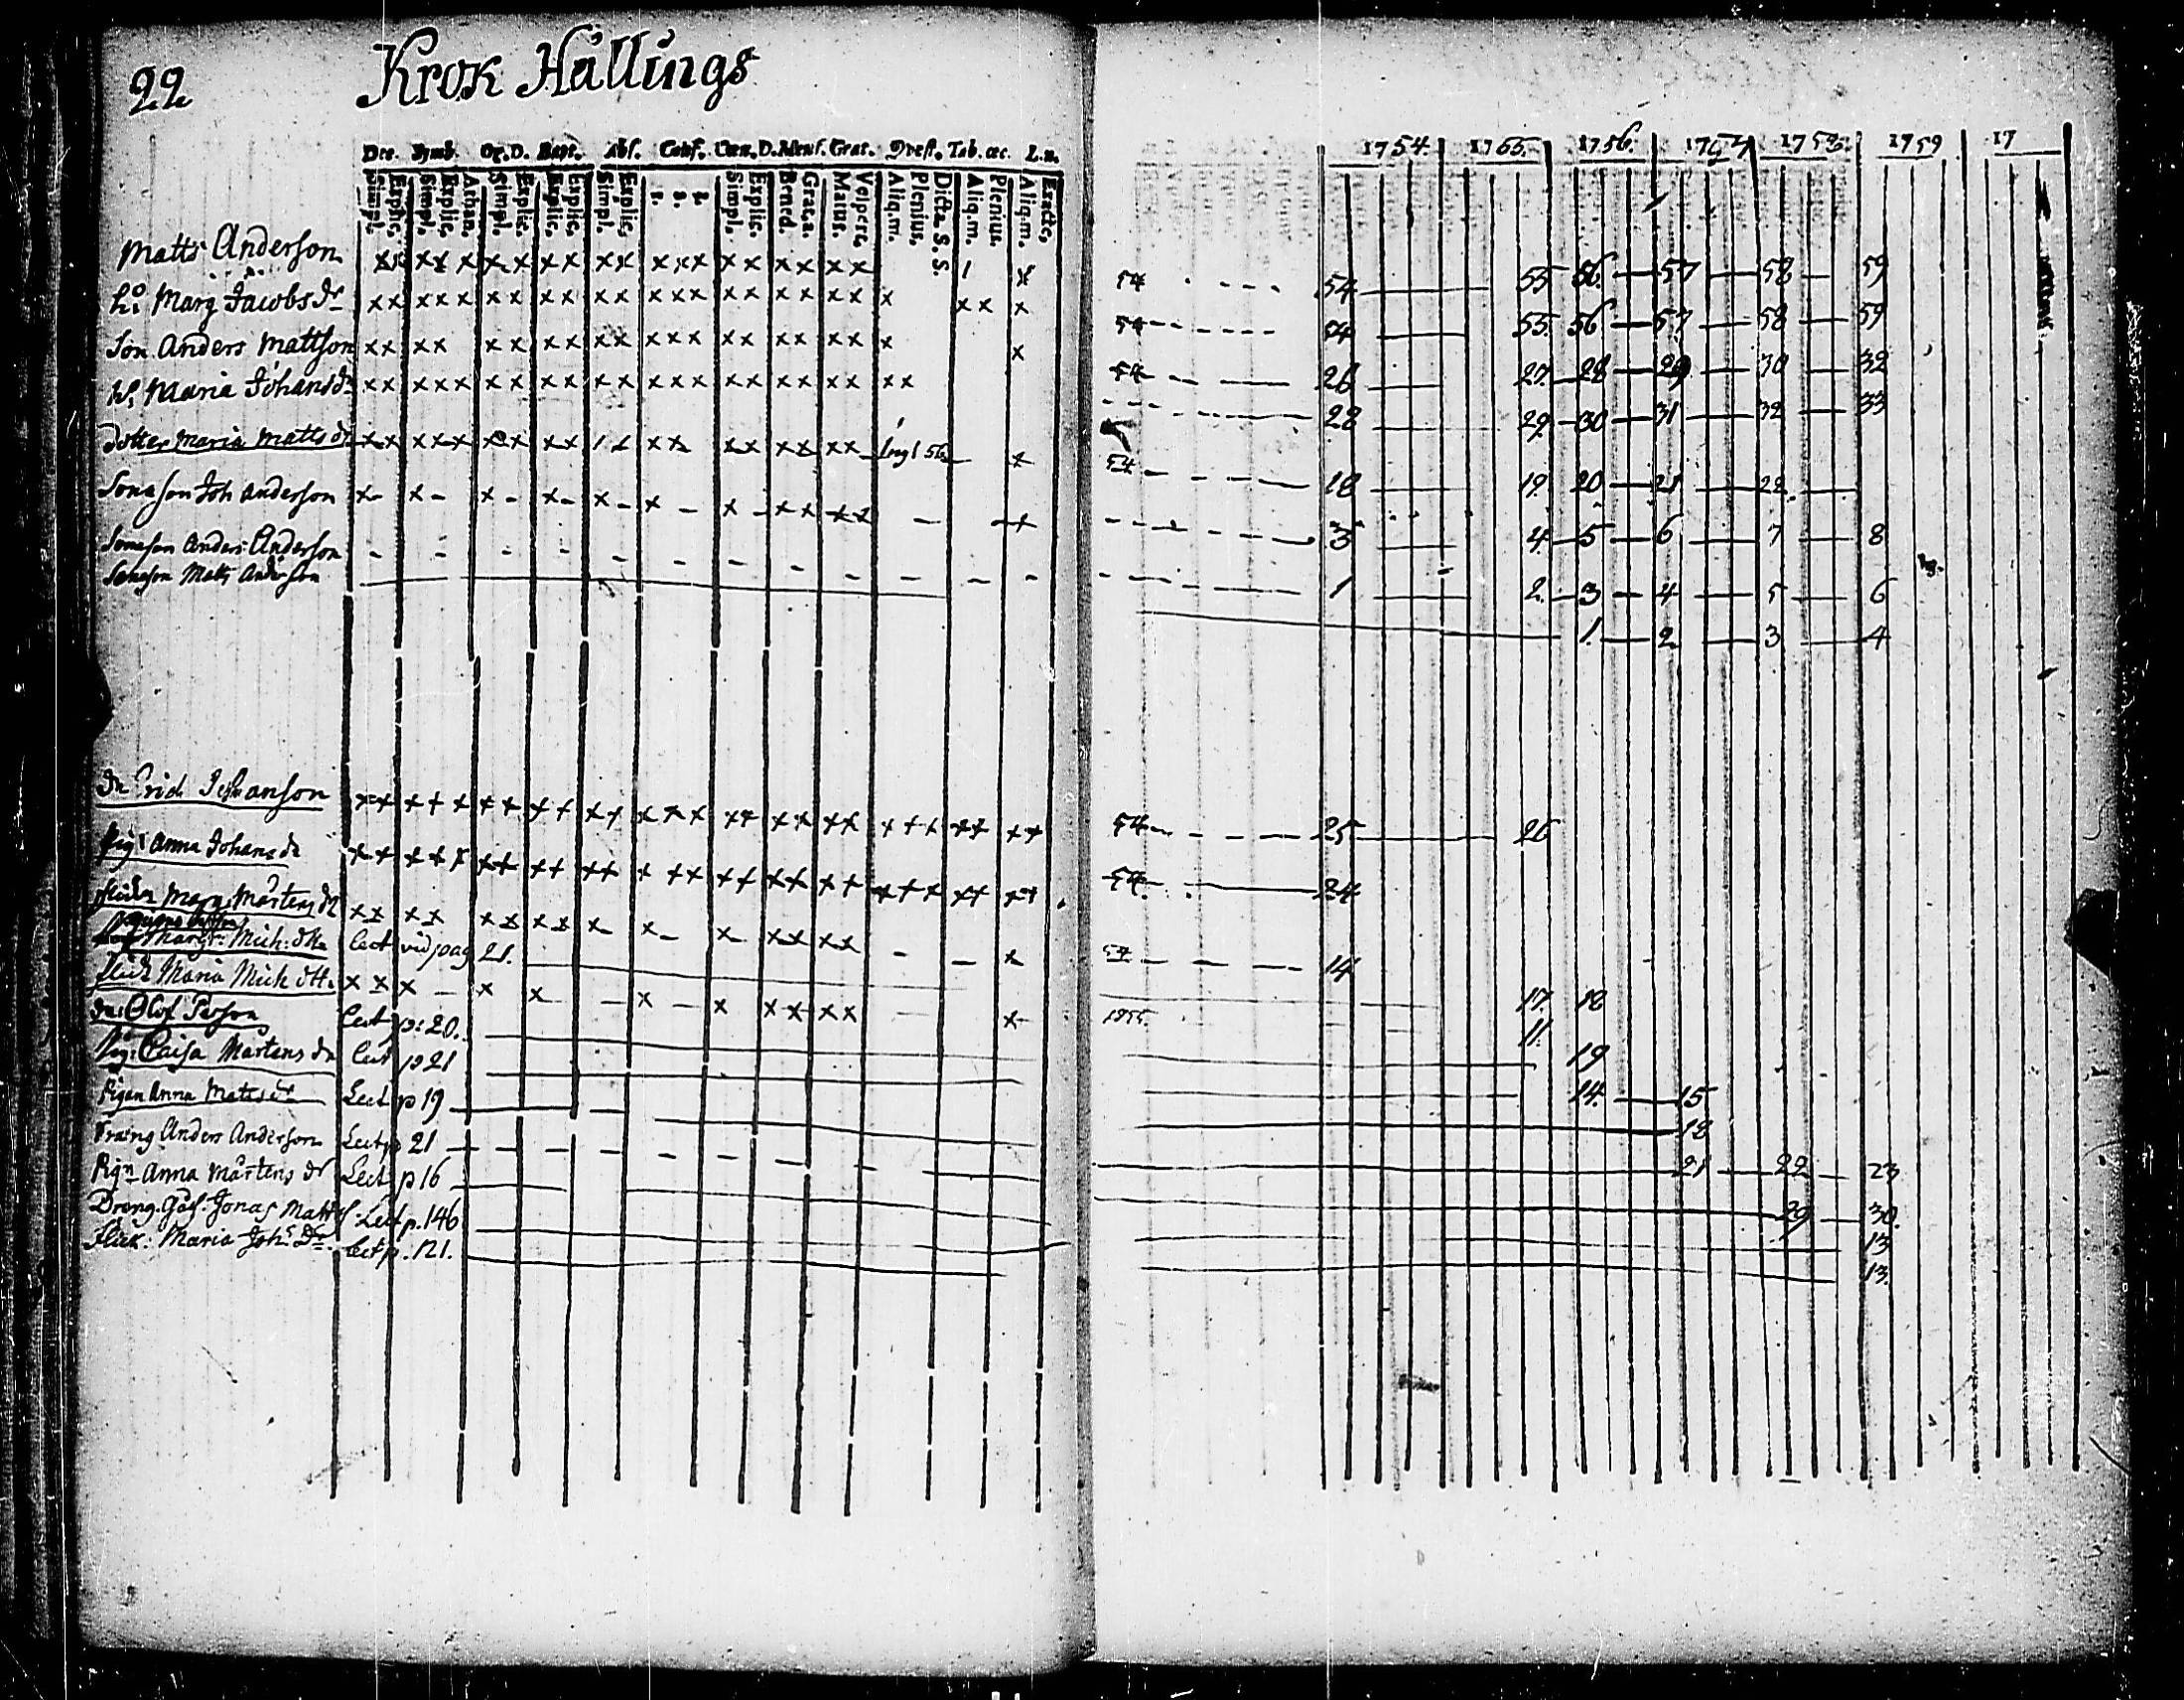 22 Krok Hållings
Dec. Symb. Or. D. Bapt. Abs. Conf. Cœn. D. Mens. Grat. Qvest. Tab. œc. L. n.
Simpl. Explic. Simpl. Explic. Athan. Simpl. Explic. Explic. Simpl. Explic. 1. 2. 3. Simpl. Explic. Bened. Grat. a. Matut. Vespert. Aliq. m. Plenius. Dicta S. S. Aliq. m. Plenius. Aliq. m. Exacte.
1754. 1755. 1756. 1757 1758. 1759 17
Matts Anderson 54 54 55 56. 57 58 59
h: Marg Jacobs dr 54 54 55. 56 57 58 59
Son Anders Mattson 54 26 27. 28 29 30 32
h. Maria Johans dr 28 29. 30 31 32 33
dotter Maria Matts dr 56 54 18 19. 20 21 22.
Sonason Joh Anderson 3 4. 5 6 7 8
Sonason Anders Anderson 1 2. 3 4 5 6
Sonason Matts Anderson 1. 2 3 4
dn Erich Johanson 54 25 26
Pig: Anna Johans dr 54 24
flickn Marg. Mårtens dr 54 14
Margr: Mich: dtr lect vid pag 21. 17. 18
flick Maria Mich dtr. 1755. 11.
dn: Olof Person Lect p: 20. 19
Pig: Caisa Mårtens dr lect p 21 14. 15
Pigan Anna Matts dr Lect p 19 18
Dräng Anders Anderson Lect p 21 21 22 23
Pign Anna Mårtens dr Lect p 16 29 30.
Dreng. Jonas Matts Lect p. 146 13
Flick: Maria Joh: Dr. Lect p. 121. 13.